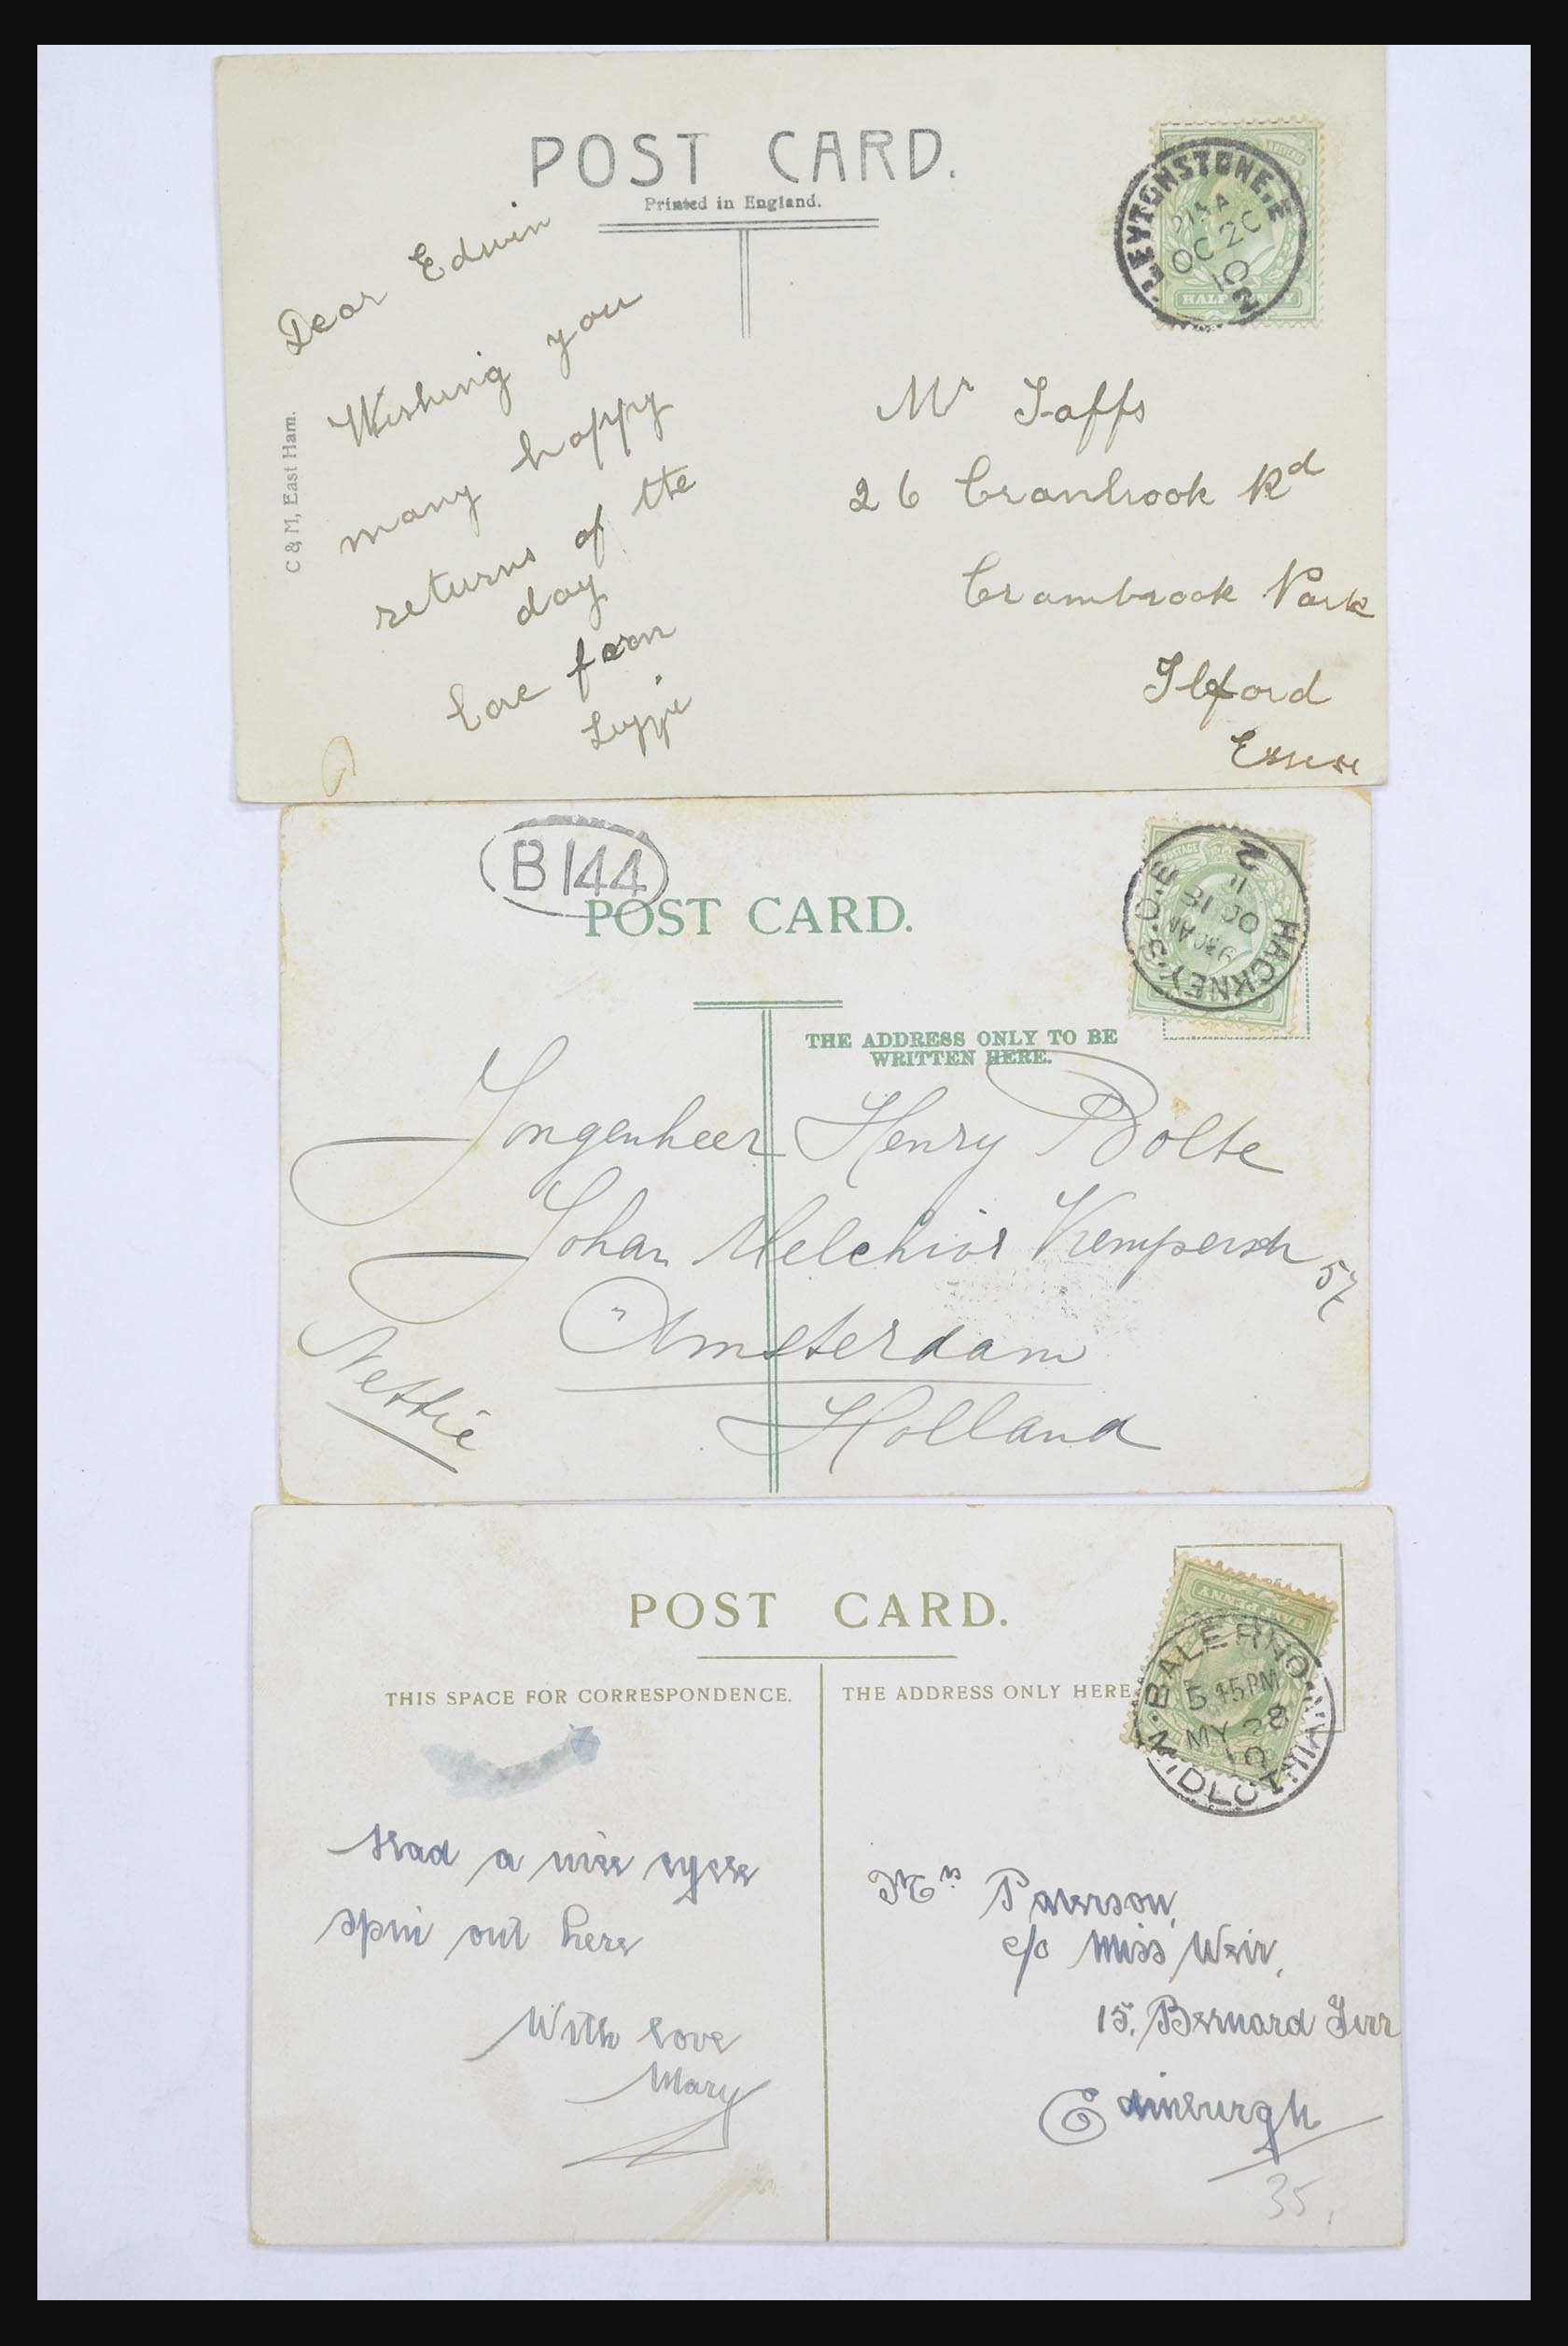 POST CARD.
Printed in England.
LEYTONSTONE, E
OC 20
10
2
HALF PENNY
Dear Edwin
Wishing you
many happy
returns of the
day
love from
C & M, East Ham.
Mr Taffs
26 Cranbrook Rd
Crambrook Park
Ilford
Essex
B144
POST CARD.
POSTAGE
HACKNEY. S.O. E
9 30 AM
OC 18
11
2
THE ADDRESS ONLY TO BE
WRITTEN HERE.
Jongenheer Henry Bolte
Johan Melchior Kemperstr 57
Amsterdam
Holland
Nettie
POST CARD.
THIS SPACE FOR CORRESPONDENCE.
THE ADDRESS ONLY HERE
HALF PENNY
BALERNO MIDLOTHIAN
5 45 PM
MY 28
10
Had a nice cycle
spin out here
With love
Mary
Mrs Paterson,
c/o Miss Weir,
15, Bernard Terr
Edinburgh
35,